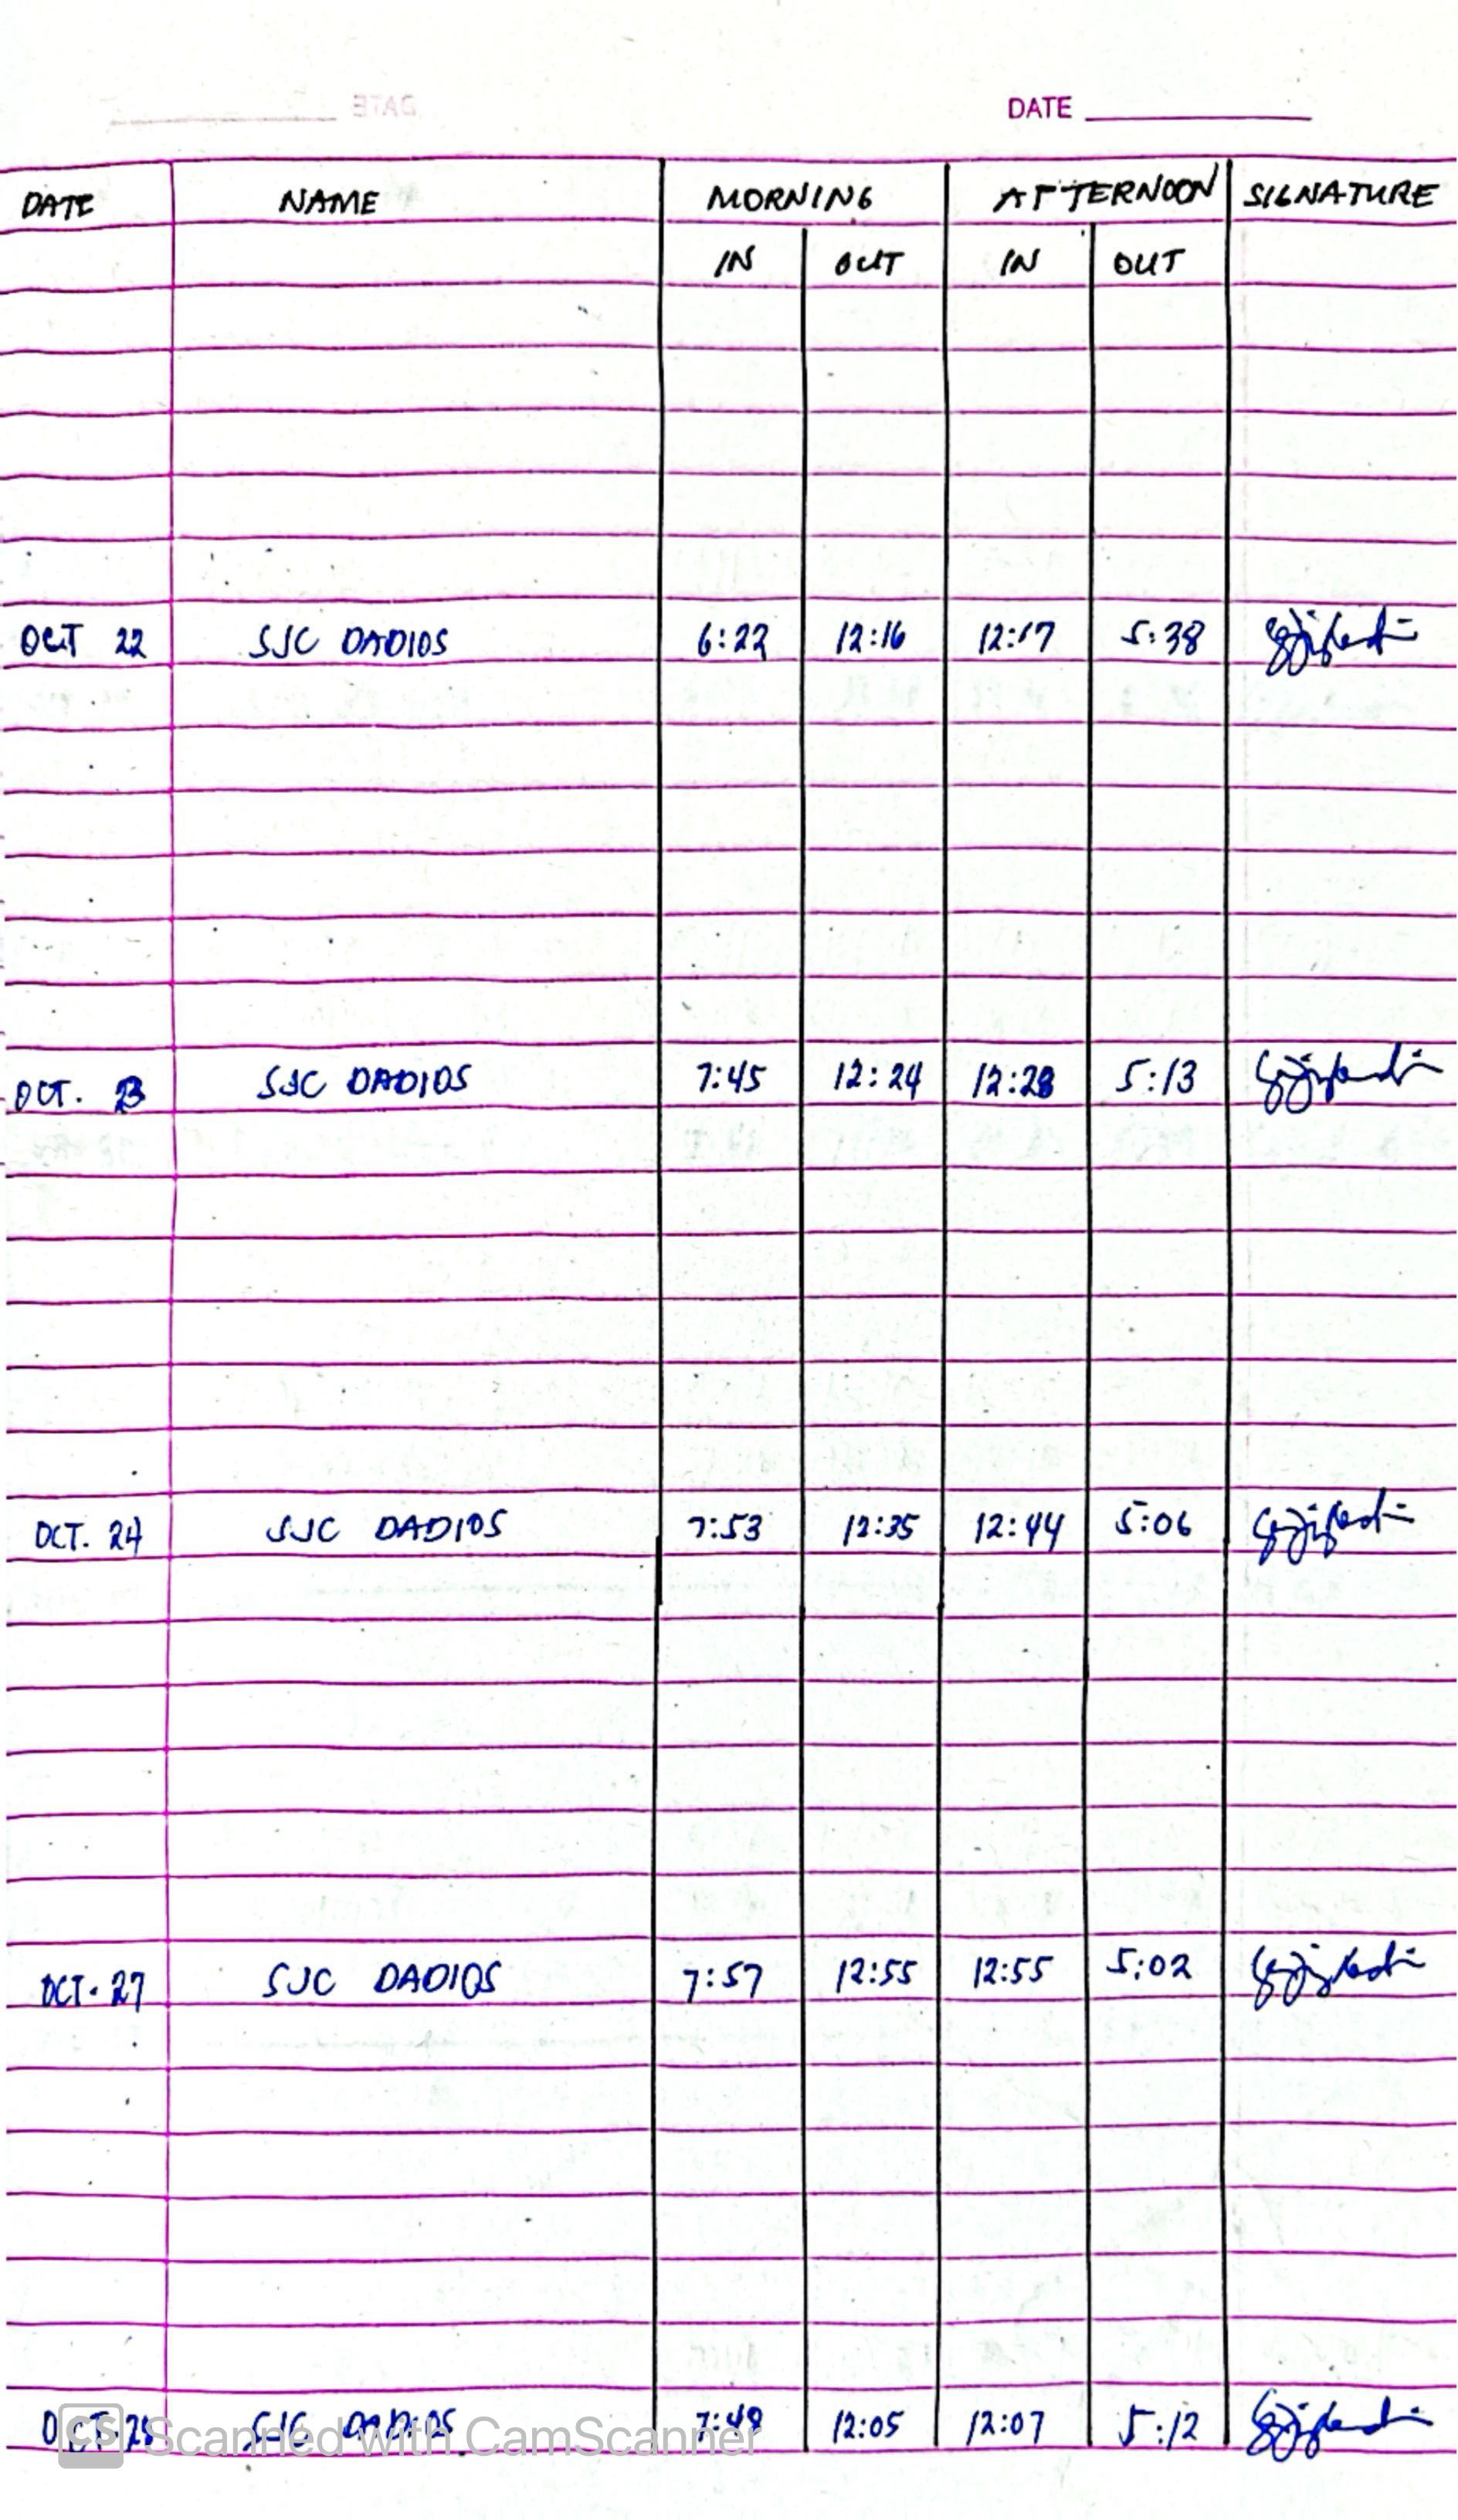 DATE
DATE NAME MORNING AFTERNOON SIGNATURE
IN OUT IN OUT
OCT 22 SJC DADIOS 6:22 12:16 12:17 5:38
OCT. 23 SJC DADIOS 7:45 12:24 12:28 5:13
OCT. 24 SJC DADIOS 7:53 12:35 12:44 5:06
OCT. 27 SJC DADIOS 7:57 12:55 12:55 5:02
OCT. SJC DADIOS 12:05 12:07 5:12
CS Scanned with CamScanner